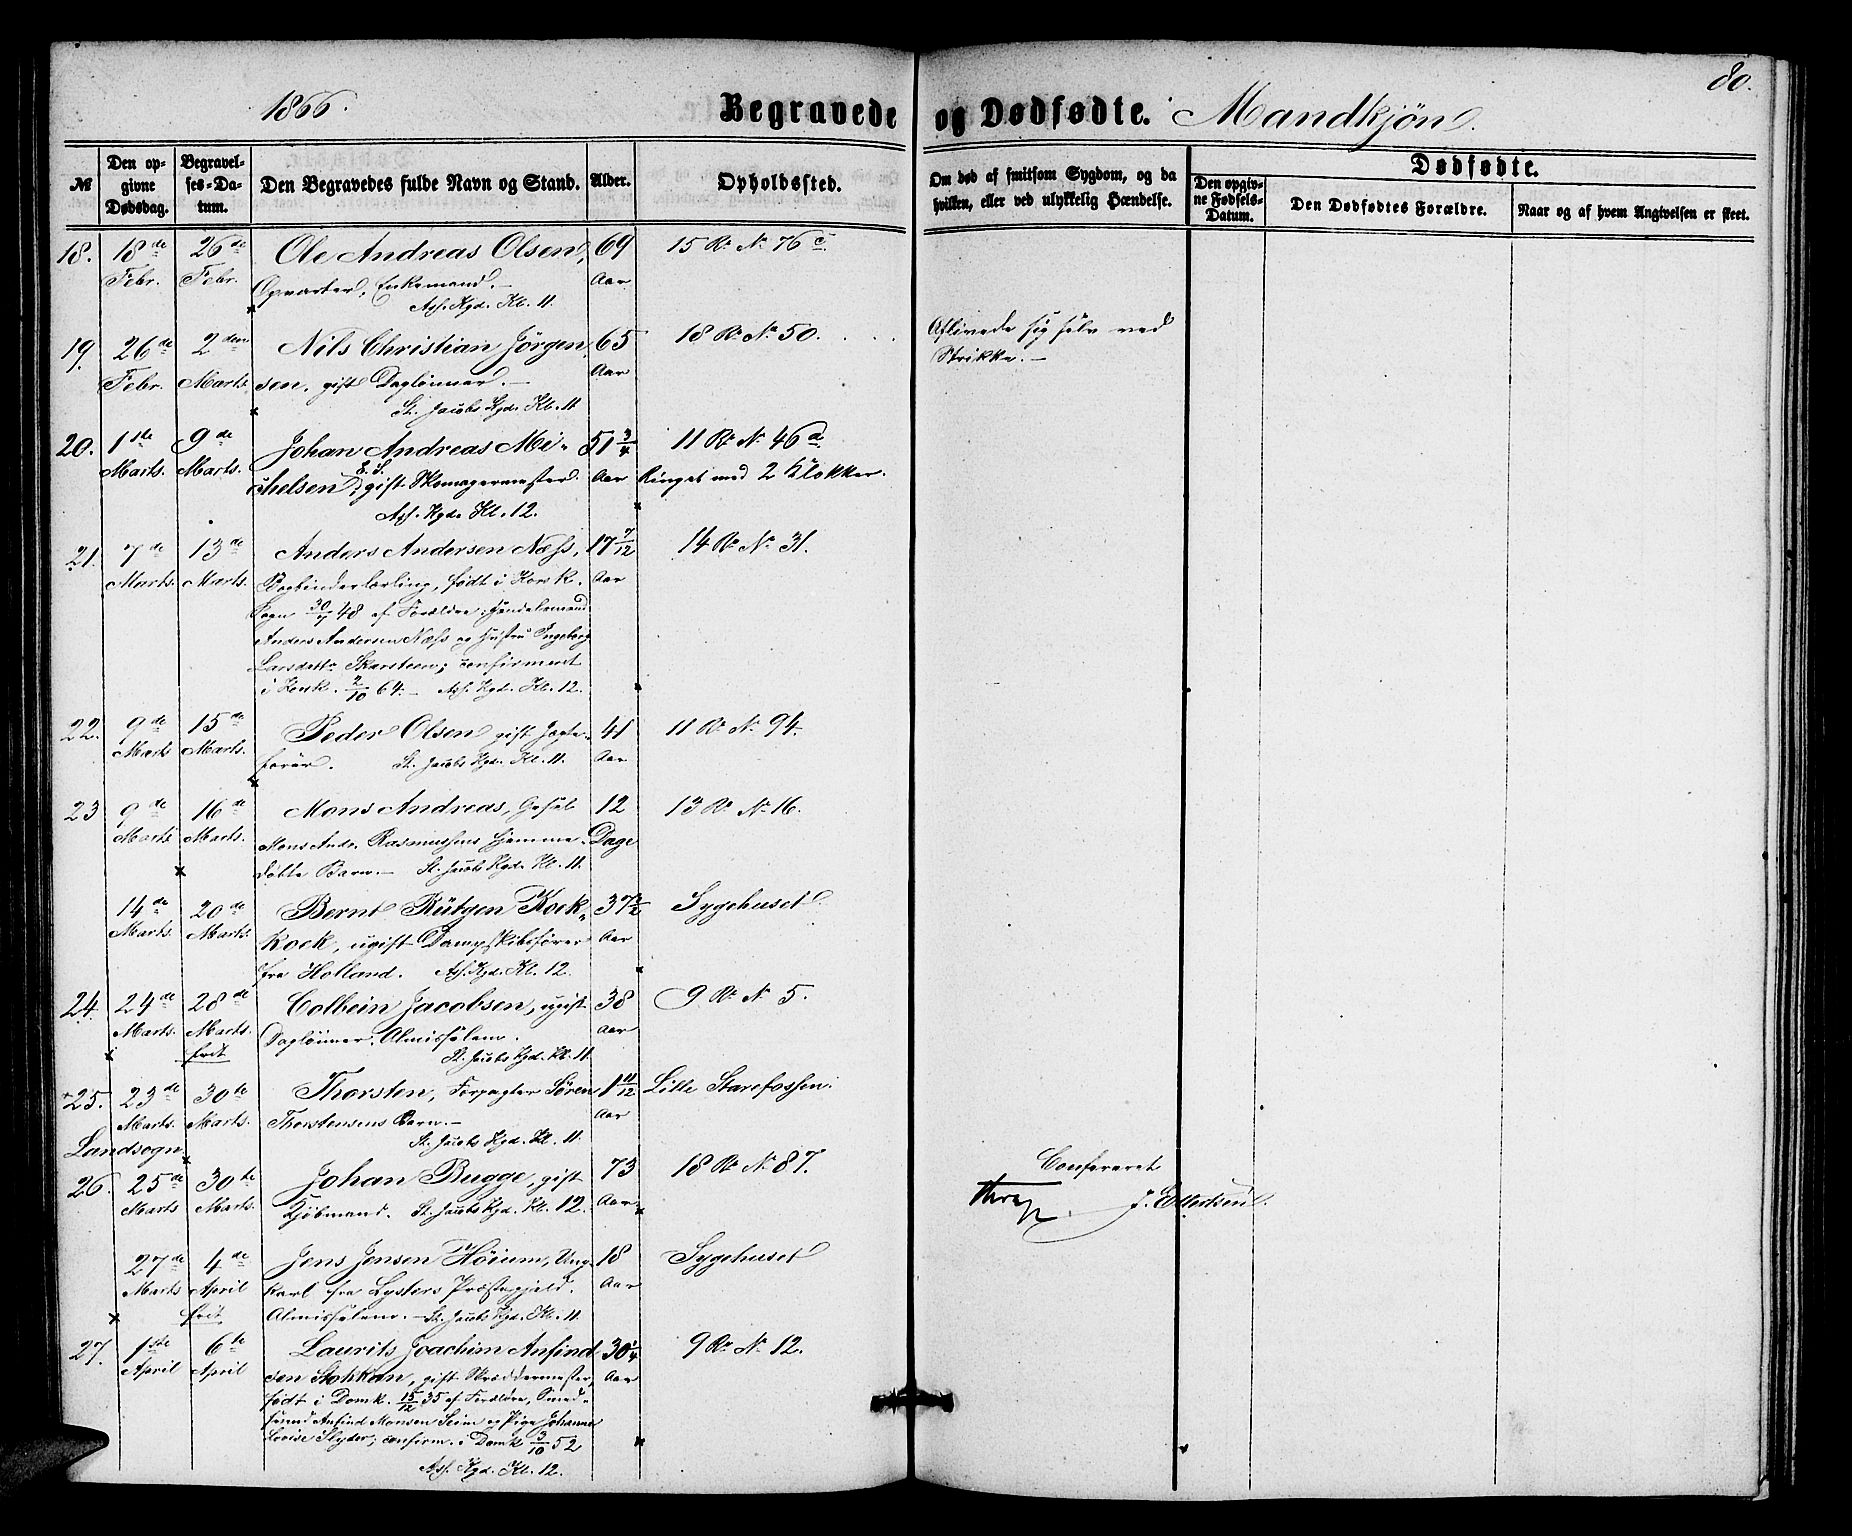 80.
1866.
Begravede og Dødfødte. Mandkjøn.
№
Den opgivne Dødsdag.
Begravelses-Datum.
Den Begravedes fulde Navn og Stand.
Alder.
Opholdssted.
Om død af smitsom Sygdom, og da hvilken, eller ved ulykkelig Hændelse.
Dødfødte.
Den opgivne Fødsels-Datum.
Den Dødfødtes Forældre.
Naar og af hvem Angivelsen er skeet.
18. 18de 26de Ole Andreas Olsen, 69 15 R. № 76 c.
Febr. Febr. Opvarter, Enkemand. Aar
Ass. Kgd. Kl. 11.
19. 26de 2den Nils Christian Jörgen 65 18 R. № 50. Aflivede sig selv ved
Febr. Marts. sen, gift Daglønner. Aar Strikke.
St. Jacobs Kgd. Kl. 11
20. 1ste 9de Johan Andreas Mi- 51 3/4 11 R. № 46 d.
Marts. Marts. chelsen, E. S. gift Skomagermester Aar Ringet med 2 Klokker.
Ass. Kgd. Kl. 12.
21. 7de 13de Anders Andersen Næss, 17 7/12 14 R. № 31.
Marts. Marts. Bogbinderlærling, født i Kors k. Aar
Sogn 30/7 48 af Forældre:
Anders Andersen Næss og Hustru Ingeborg
Larsdattr Skarsteen; confirmeret
i Korsk. 2/10 64. Ass. Kgd. Kl. 12.
22. 9de 15de Peder Olsen gift Jægte- 41 11 R. № 94.
Marts Marts. förer. St. Jacobs Kgd. Kl. 11. Aar
23 9de 16de Mons Andreas, 12 13 R. № 16.
Marts Marts. Mons Andr. Rasmussens hjemme Dage
døbte Barn. St. Jacobs Kgd. Kl. 11.
14de 20de Bernt Rütgen Kock- 37 1/2 Sygehuset.
Marts. Marts. Kock, ugift Dampskibsfører Aar
fra Holland. Ass. Kgd. Kl. 12.
24. 24de 28de Colbein Jacobsen, ugift 38 9 R. № 5.
Marts. Marts. Daglönner. Almisselem. Aar
frit St. Jacobs Kgd. Kl. 11.
25. 23de 30te Thorsten, Forpagter Sören 1 11/12 Lille Starefossen.
Marts. Marts. Thorstensens Barn. Aar
Landsogn St. Jacobs Kgd. Kl. 11.
26. 25de 30te Johan Bugge, gift 73 18 R. № 87. Confereret
Marts Marts. Kjöbmand. St. Jacobs Kgd. Kl. 12. Aar
27de 4de Jens Jensen Höium, Ung- 18 Sygehuset
Marts April karl fra Lysters Præstegjeld. Aar
frit Almisselem. St. Jacobs Kgd. Kl. 11.
27. 1ste 6te Laurits Joachim Anfind 30 1/4 9 R. № 12.
April April sen Stokkan, gift Skræddermester, Aar
født i Domk. 15/12 35 af Forældre, Smed-
svend Anfind Monsen Seim og Pige Johanna
Lovise Slyder; confirm. i Domk 3/10 52
Ass. Kgd. Kl. 12.